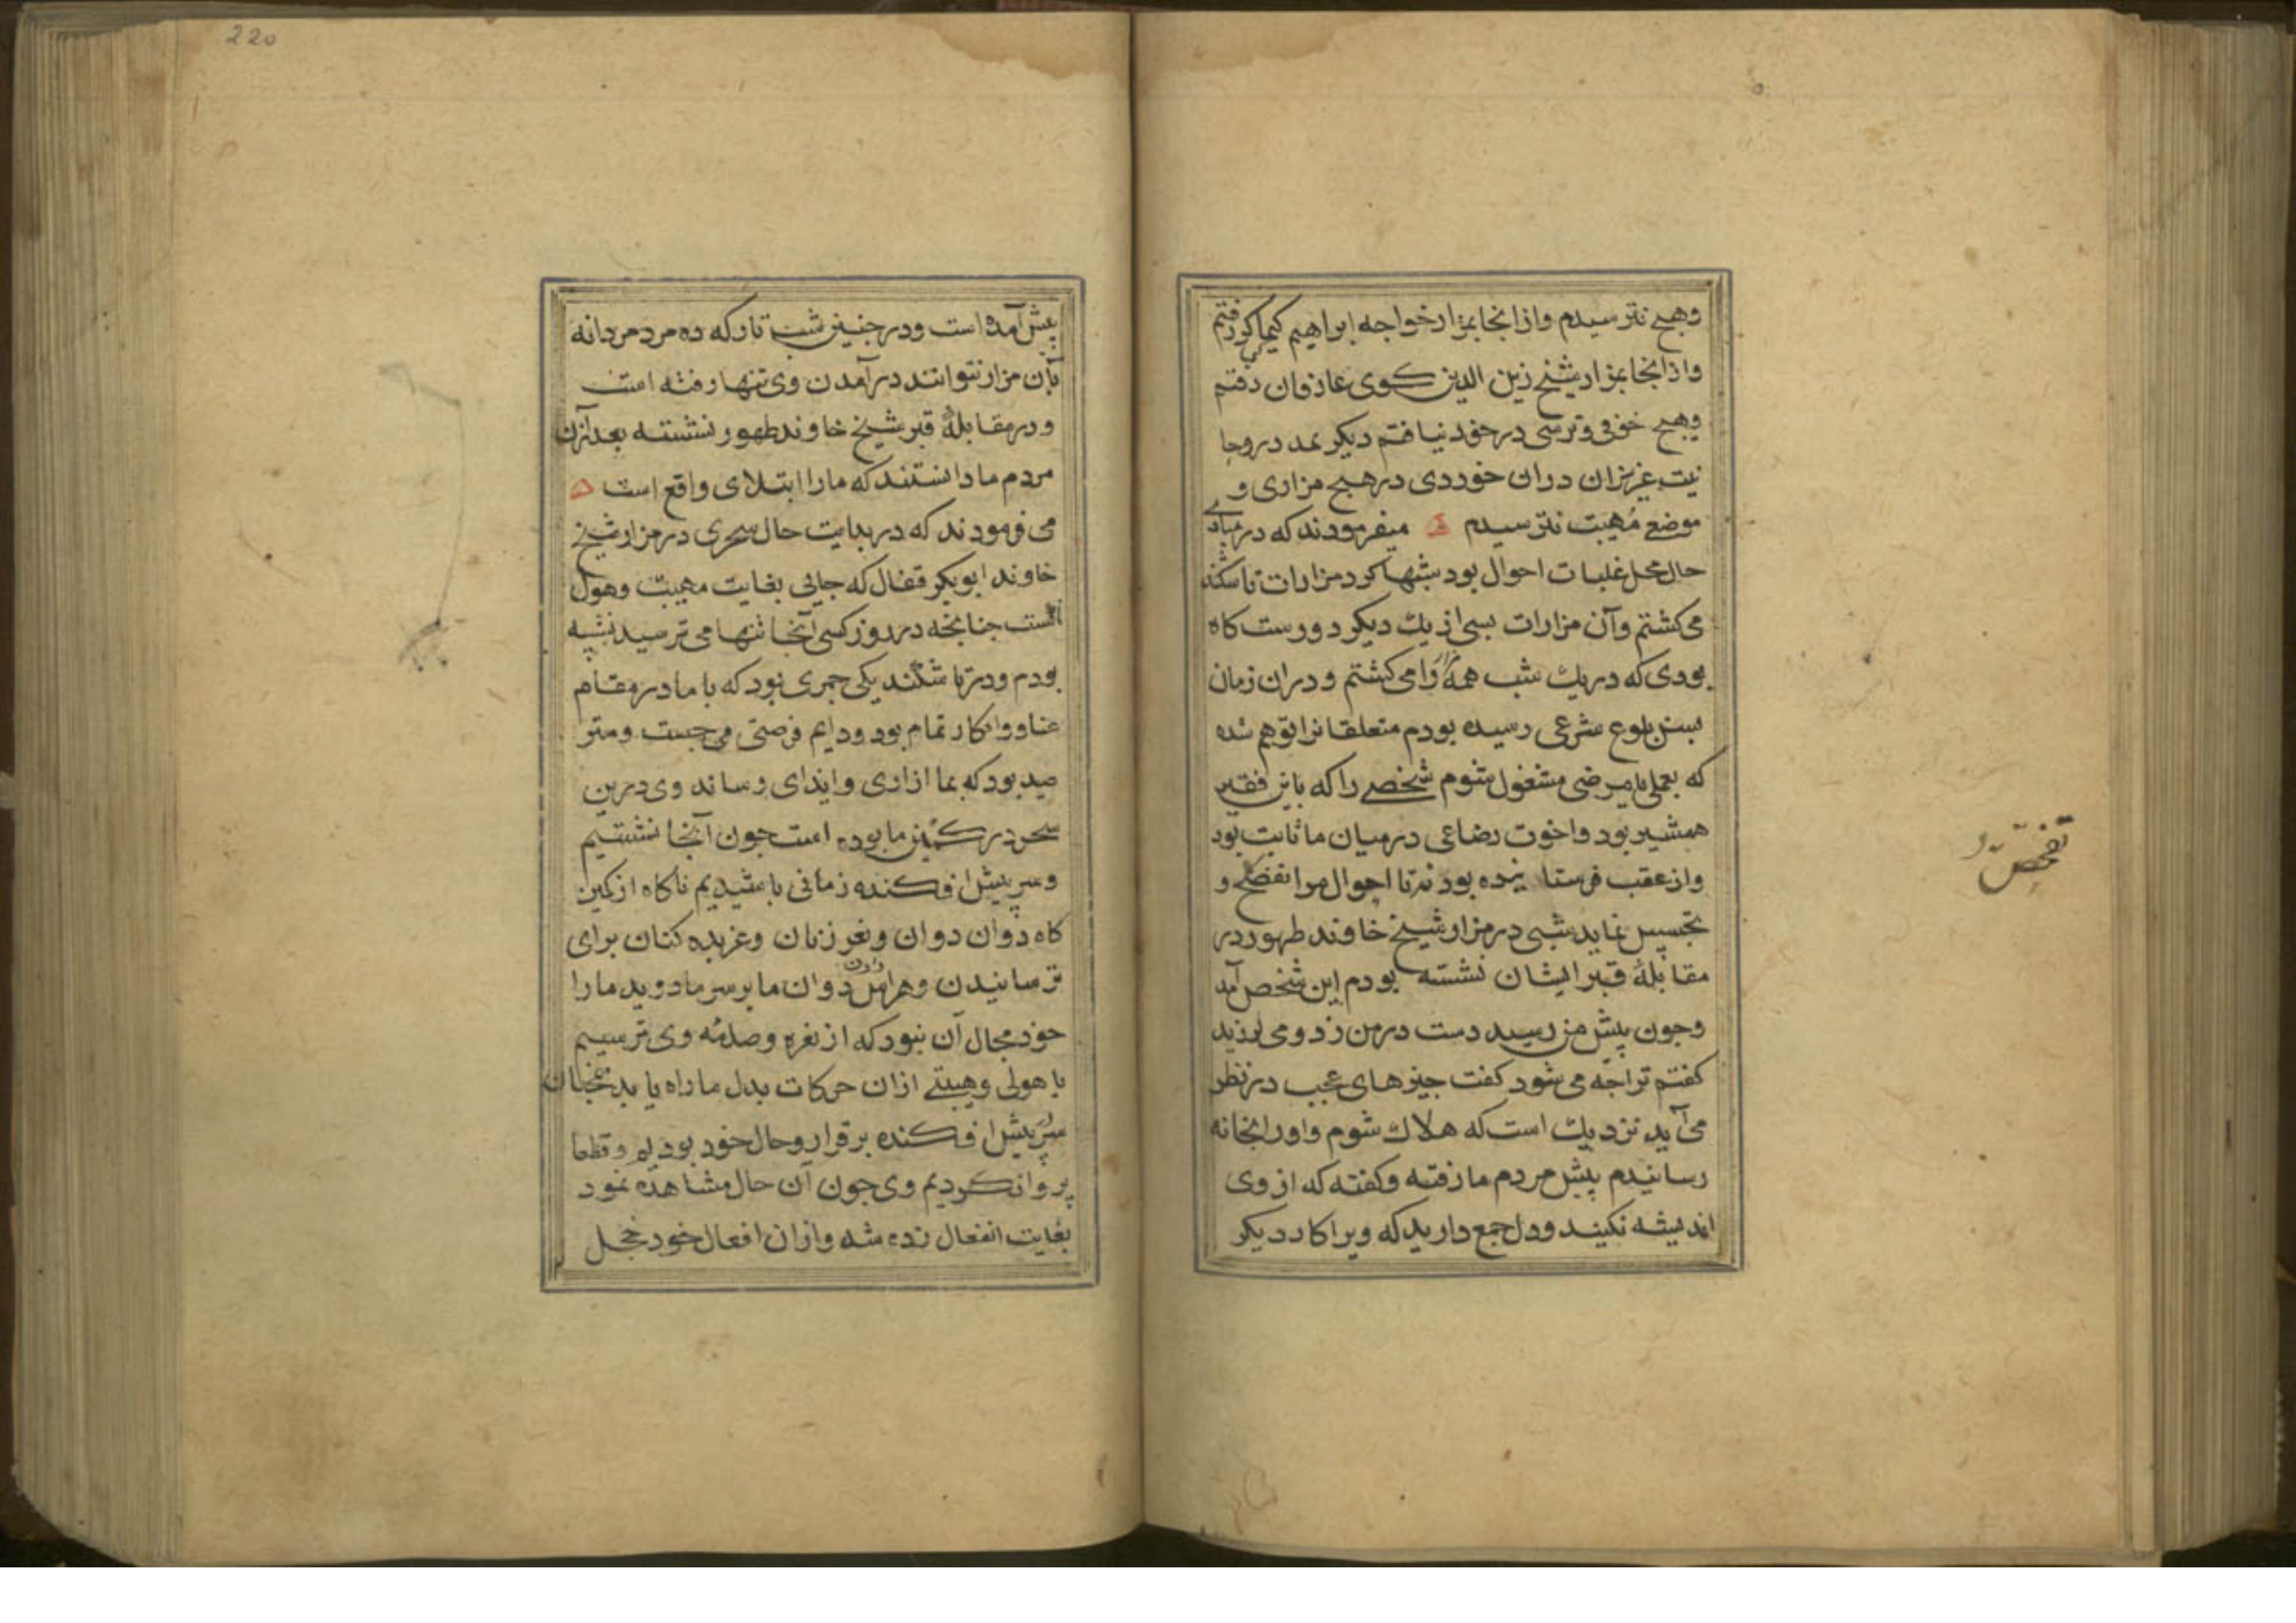 وهیج نترسیدم وازانجا بمزار خواجه ابراهیم کیماکر رفتم
وازانجا بمزار شیخ زین الدین کوی عارفان رفتم
وهیج خوفی وترسی درخود نیافتم دیکر بمدد روحا
نیت عزیزان دران خوردی درهیج مزاری و
موضع مهیبت نترسیدم میفرمودند که در مبادی
حال محل غلبات احوال بود شبها کرد مزارات تاشکند
می کشتم وآن مزارات بسی از یك دیکر دورست کاه
بودی که دریك شب همه را می کشتم ودران زمان
بسن بلوغ شرعی رسیده بودم متعلقانرا توهم شده
که بعملی نامرضی مشغول شوم شخصی را که باین فقیر
همشیر بود واخوت رضاعی درمیان ما ثابت بود
وازعقب فرستا نیده بودند تا احوال مرا تفحص و
تجسس نماید شبی درمزار شیخ خاوند طهور در
مقابلهٔ قبر ایشان نشسته بودم این شخص آمد
وجون پیش من رسید دست درمن زد ومی لرزید
کفتم تراجه می شود کفت جیزهای عجب درنظر
می آید نزدیك است که هلاك شوم واورا بخانه
رسانیدم پیش مردم ما رفته وکفته که از وی
اندیشه نکنید ودل جمع دارید که ویرا کار دیکر
تفحص و
220
پیش آمده است ودرجنین شب تار که ده مرد مردانه
بآن مزار نتوانند درآمدن وی تنها رفته است
ودرمقابلهٔ قبر شیخ خاوند طهور نشسته بعد ازان
مردم ما دانستند که مارا ابتلای واقع است
می فرمودند که دربدایت حال سحری درمزار شیخ
خاوند ابوبکر قفال که جایی بغایت مهیبت وهول
است جنانجه درروز کسی آنجا تنها می ترسید نشسته
بودم ودرتاشکند یکی جمری بود که با ما درمقام
عناد وانکار تمام بود ودایم فرصتی می جست ومتر
صید بود که بما ازاری وایذای رساند وی درین
سحر درکمین ما بوده است جون آنجا نشستیم
وسر پیش افکنده زمانی باشیدیم ناکاه از کمین
کاه دوان دوان ونعره زنان وعربده کنان برای
ترسانیدن وهراس دادن ما برسر ما دوید مارا
خود مجال آن نبود که از نعره وصدمه وی ترسیم
یا هولی وهیبتی ازان حرکات بدل ما راه یابد همجنان
سر پیش افکنده برقرار وحال خود بودیم وقطعا
پروا نکردیم وی جون آن حال مشاهده نمود
بغایت انفعال زده شد وازان افعال خود خجل